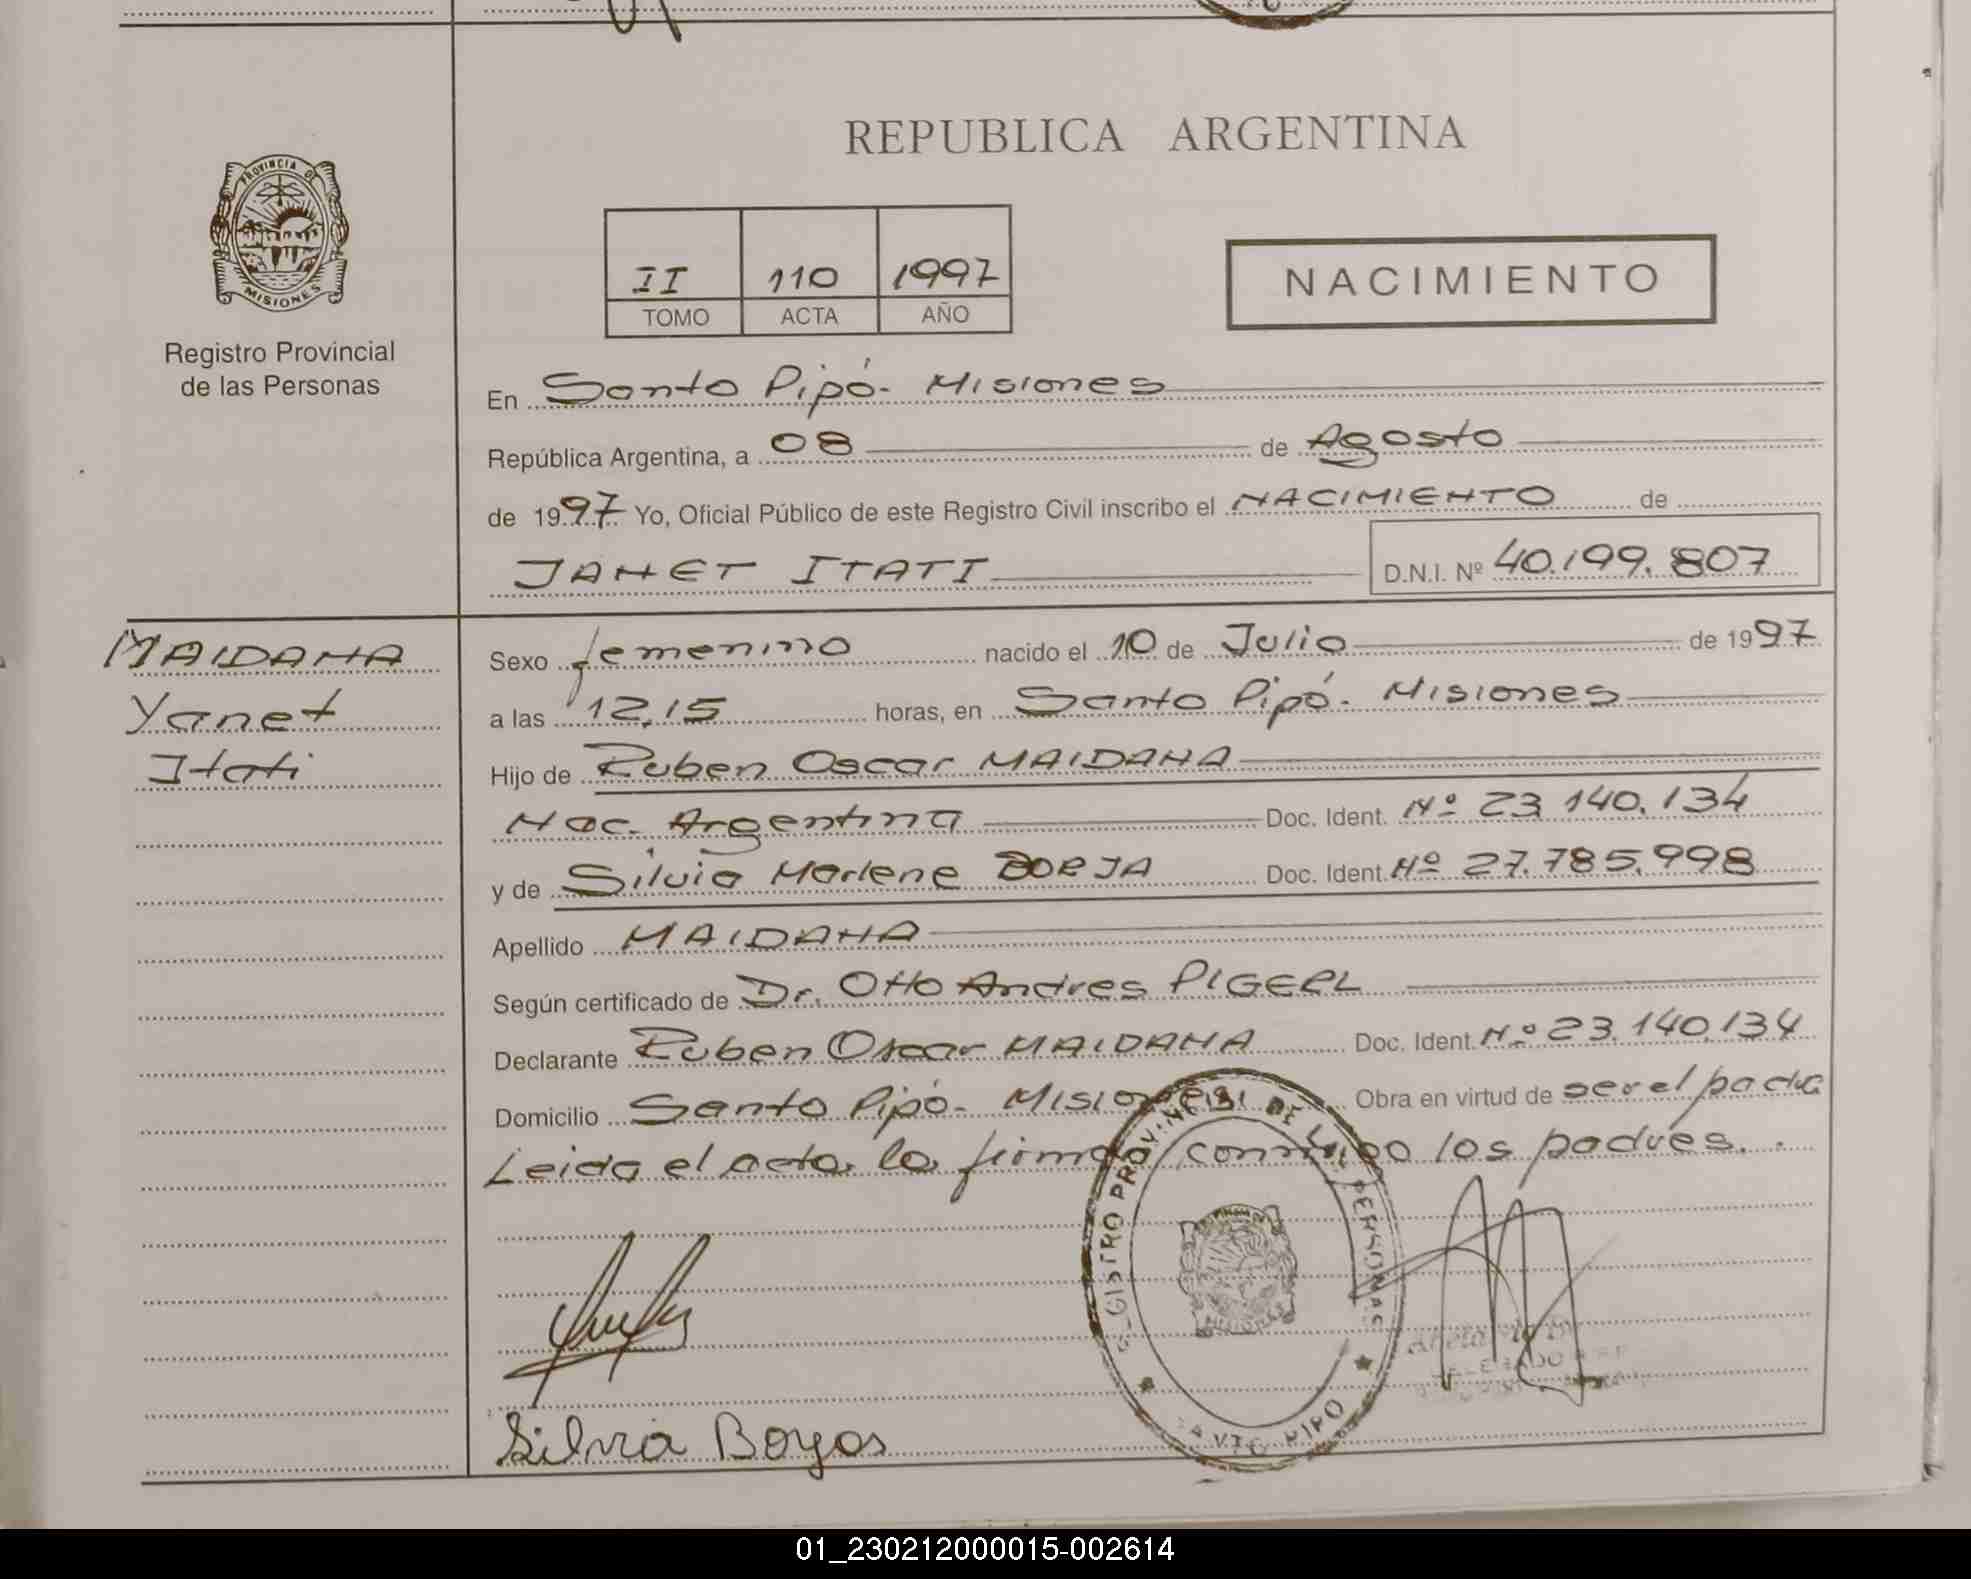 REPUBLICA ARGENTINA
PROVINCIA DE
MISIONES
Registro Provincial
de las Personas
II 110 1997
TOMO ACTA AÑO
NACIMIENTO
En Santo Pipó- Misiones
República Argentina, a 08 de Agosto
de 1997 Yo, Oficial Público de este Registro Civil inscribo el NACIMIENTO de
JANET ITATI D.N.I. Nº 40.199.807
MAIDANA
Yanet
Itati
Sexo femenino nacido el 10 de Julio de 1997
a las 12,15 horas, en Santo Pipó- Misiones
Hijo de Ruben Oscar MAIDANA
Nac. Argentina Doc. Ident. Nº 23.140.134
y de Silvia Marlene BORJA Doc. Ident. Nº 27.785.998
Apellido MAIDANA
Según certificado de Dr. Otto Andres PIGERL
Declarante Ruben Oscar MAIDANA Doc. Ident. Nº 23.140.134
Domicilio Santo Pipó- Misiones Obra en virtud de ser el padre
Leida el acta, la firman conmigo los padres.
REGISTRO PROVINCIAL DE LAS PERSONAS
SANTO PIPO
Silvia
01_230212000015-002614